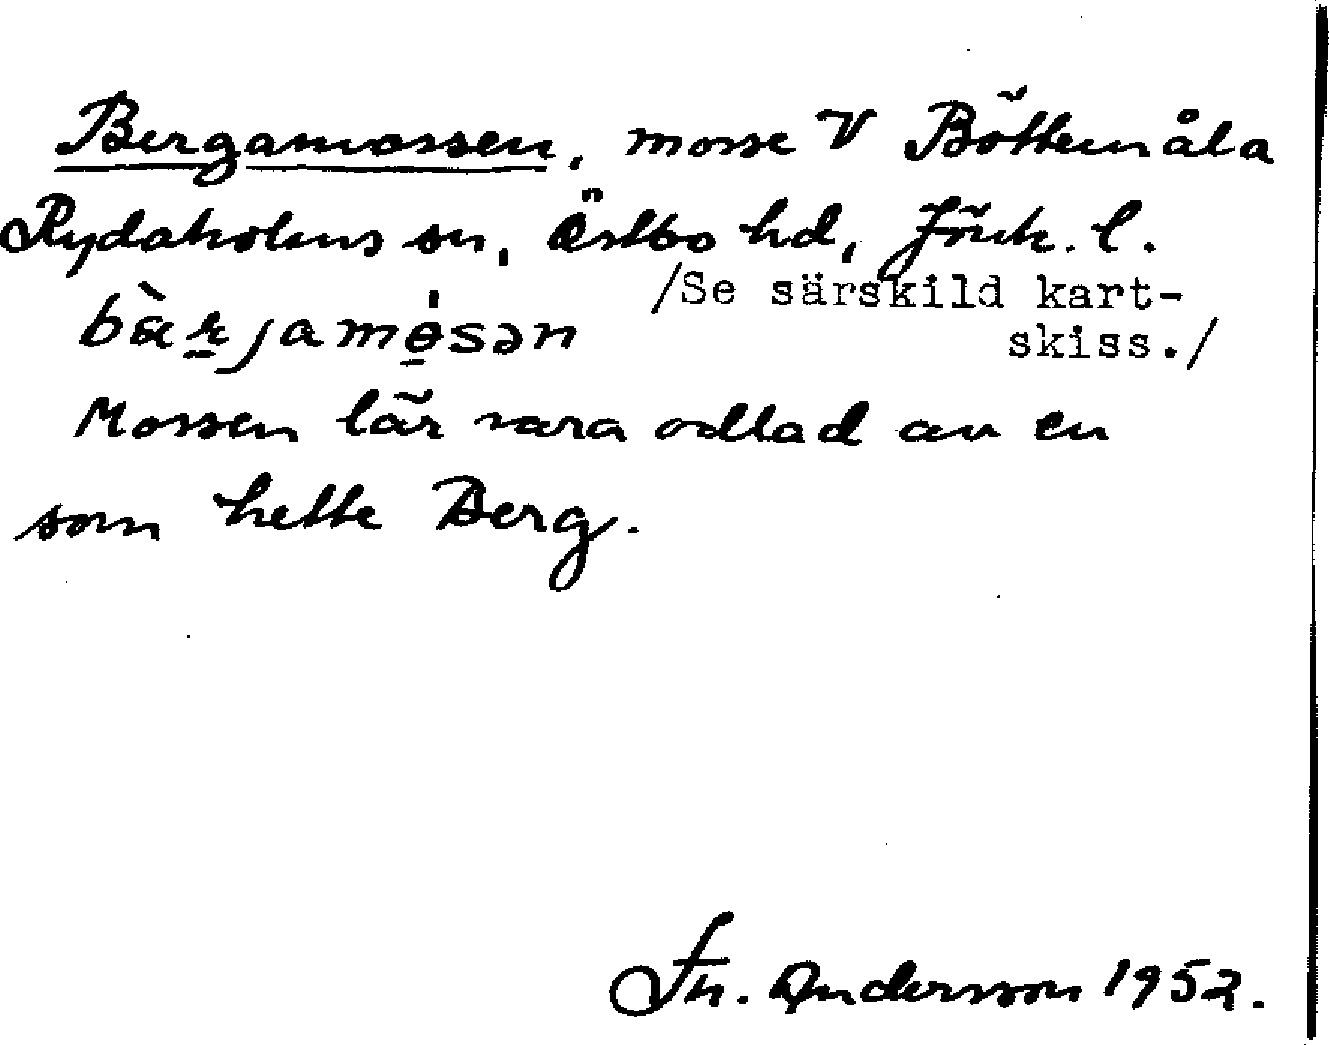 Bergamossen, mosse V Böttemåla
Rydaholms sn, Östbo hd, Jönk. l.
/Se särskild kart-
skiss./
bàrjamósən
Mossen lär vara odlad av en
som hette Berg.
Th. Andersson 1952.